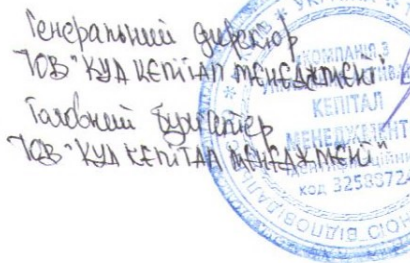 Генеральний директор
ТОВ "КУА КЕПІТАЛ МЕНЕДЖМЕНТ"
Головний бухгалтер
ТОВ "КУА КЕПІТАЛ МЕНЕДЖМЕНТ"
КОМПАНІЯ З
КЕПІТАЛ
МЕНЕДЖМЕНТ
код